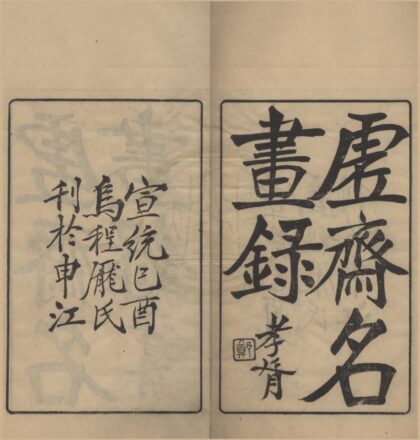 虚齋名
畫錄
孝胥
鄭
宣統己酉
烏程龐氏
刊於申江